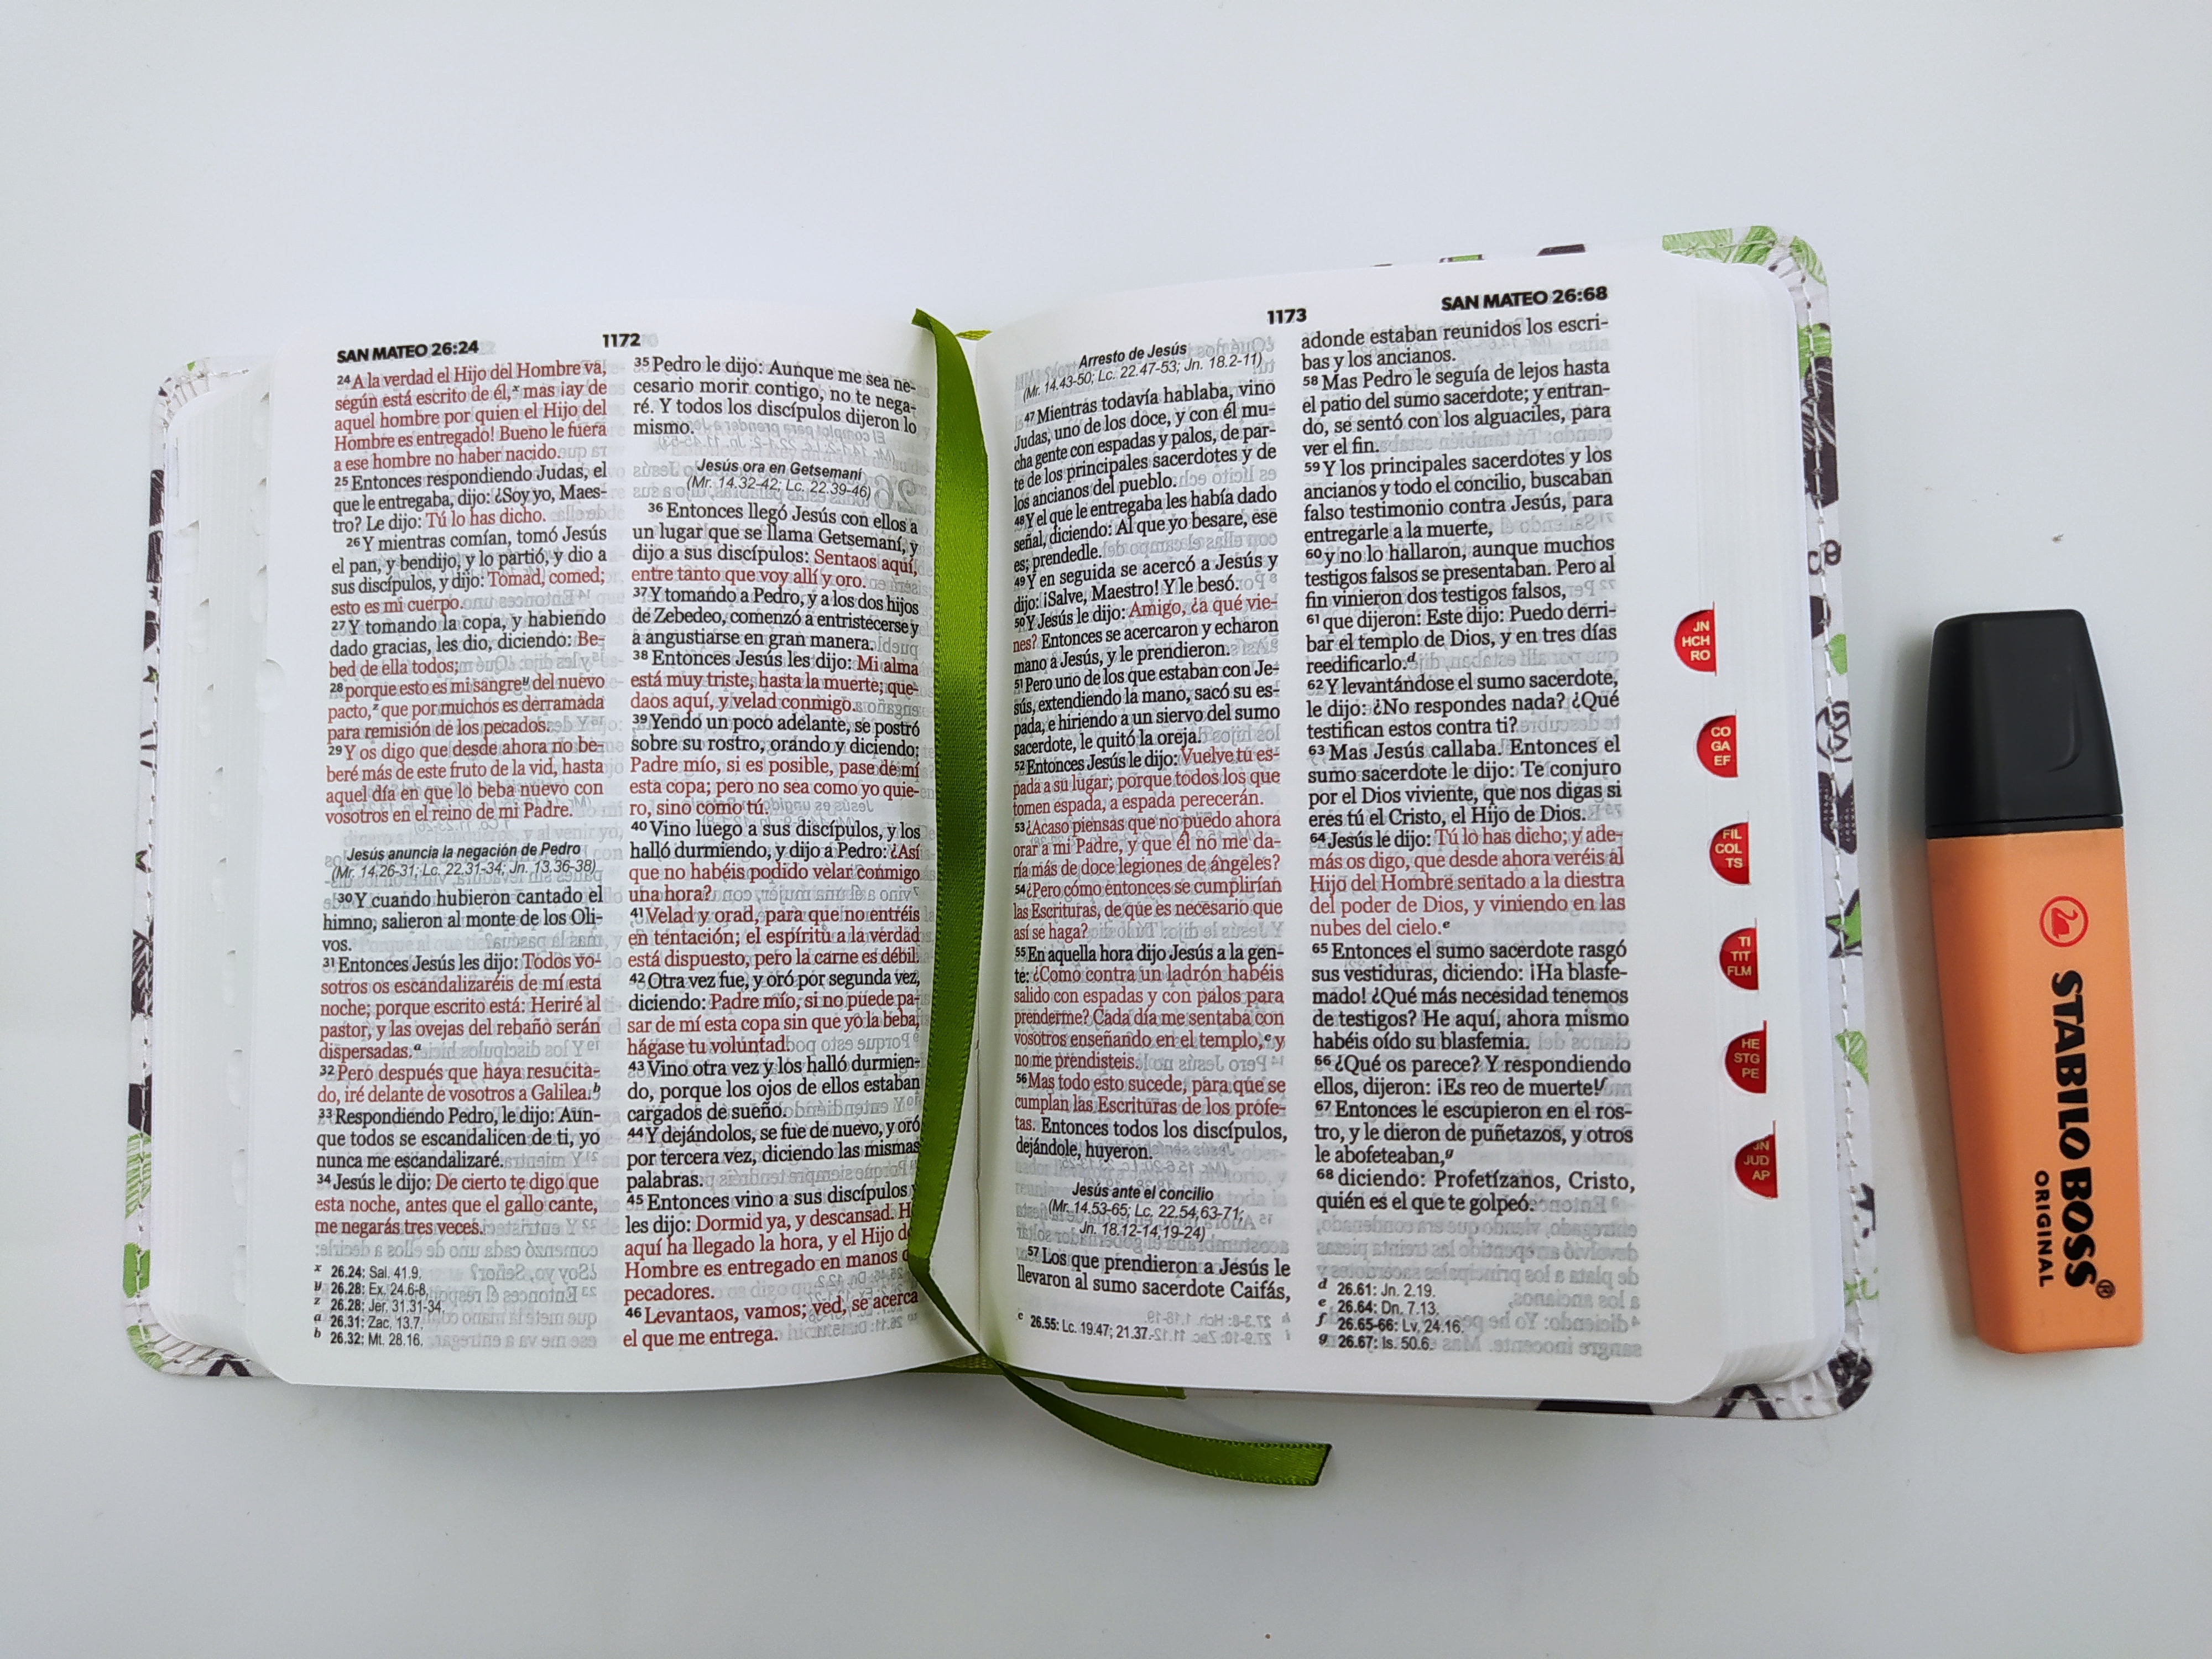 SAN MATEO 26:24
1172
24 A la verdad el Hijo del Hombre va,
según está escrito de él,x mas ¡ay de
aquel hombre por quien el Hijo del
Hombre es entregado! Bueno le fuera
a ese hombre no haber nacido.
25 Entonces respondiendo Judas, el
que le entregaba, dijo: ¿Soy yo, Maes-
tro? Le dijo: Tú lo has dicho.
26 Y mientras comían, tomó Jesús
el pan, y bendijo, y lo partió, y dio a
sus discípulos, y dijo: Tomad, comed;
esto es mi cuerpo.
27 Y tomando la copa, y habiendo
dado gracias, les dio, diciendo: Be-
bed de ella todos;
28 porque esto es mi sangrey del nuevo
pacto,z que por muchos es derramada
para remisión de los pecados.
29 Y os digo que desde ahora no be-
beré más de este fruto de la vid, hasta
aquel día en que lo beba nuevo con
vosotros en el reino de mi Padre.
Jesús anuncia la negación de Pedro
(Mr. 14.26-31; Lc. 22.31-34; Jn. 13.36-38)
30 Y cuando hubieron cantado el
himno, salieron al monte de los Oli-
vos.
31 Entonces Jesús les dijo: Todos vo-
sotros os escandalizaréis de mí esta
noche; porque escrito está: Heriré al
pastor, y las ovejas del rebaño serán
dispersadas.a
32 Pero después que haya resucita-
do, iré delante de vosotros a Galilea.b
33 Respondiendo Pedro, le dijo: Aun-
que todos se escandalicen de ti, yo
nunca me escandalizaré.
34 Jesús le dijo: De cierto te digo que
esta noche, antes que el gallo cante,
me negarás tres veces.
x 26.24: Sal. 41.9.
y 26.28: Ex. 24.6-8.
z 26.28: Jer. 31.31-34.
a 26.31: Zac. 13.7.
b 26.32: Mt. 28.16.
35 Pedro le dijo: Aunque me sea ne-
cesario morir contigo, no te nega-
ré. Y todos los discípulos dijeron lo
mismo.
Jesús ora en Getsemaní
(Mr. 14.32-42; Lc. 22.39-46)
36 Entonces llegó Jesús con ellos a
un lugar que se llama Getsemaní, y
dijo a sus discípulos: Sentaos aquí,
entre tanto que voy allí y oro.
37 Y tomando a Pedro, y a los dos hijos
de Zebedeo, comenzó a entristecerse y
a angustiarse en gran manera.
38 Entonces Jesús les dijo: Mi alma
está muy triste, hasta la muerte; que-
daos aquí, y velad conmigo.
39 Yendo un poco adelante, se postró
sobre su rostro, orando y diciendo:
Padre mío, si es posible, pase de mí
esta copa; pero no sea como yo quie-
ro, sino como tú.
40 Vino luego a sus discípulos, y los
halló durmiendo, y dijo a Pedro: ¿Así
que no habéis podido velar conmigo
una hora?
41 Velad y orad, para que no entréis
en tentación; el espíritu a la verdad
está dispuesto, pero la carne es débil.
42 Otra vez fue, y oró por segunda vez,
diciendo: Padre mío, si no puede pa-
sar de mí esta copa sin que yo la beba,
hágase tu voluntad.
43 Vino otra vez y los halló durmien-
do, porque los ojos de ellos estaban
cargados de sueño.
44 Y dejándolos, se fue de nuevo, y oró
por tercera vez, diciendo las mismas
palabras.
45 Entonces vino a sus discípulos
les dijo: Dormid ya, y descansad. H
aquí ha llegado la hora, y el Hijo de
Hombre es entregado en manos
pecadores.
46 Levantaos, vamos; ved, se acerca
el que me entrega.
1173
SAN MATEO 26:68
Arresto de Jesús
(Mr. 14.43-50; Lc. 22.47-53; Jn. 18.2-11)
47 Mientras todavía hablaba, vino
Judas, uno de los doce, y con él mu-
cha gente con espadas y palos, de par-
te de los principales sacerdotes y de
los ancianos del pueblo.
48 Y el que le entregaba les había dado
señal, diciendo: Al que yo besare, ese
es; prendedle.
49 Y en seguida se acercó a Jesús y
dijo: ¡Salve, Maestro! Y le besó.
50 Y Jesús le dijo: Amigo, ¿a qué vie-
nes? Entonces se acercaron y echaron
mano a Jesús, y le prendieron.
51 Pero uno de los que estaban con Je-
sús, extendiendo la mano, sacó su es-
pada, e hiriendo a un siervo del sumo
sacerdote, le quitó la oreja.
52 Entonces Jesús le dijo: Vuelve tu es-
pada a su lugar; porque todos los que
tomen espada, a espada perecerán.
53 ¿Acaso piensas que no puedo ahora
orar a mi Padre, y que él no me da-
ría más de doce legiones de ángeles?
54 ¿Pero cómo entonces se cumplirían
las Escrituras, de que es necesario que
así se haga?
55 En aquella hora dijo Jesús a la gen-
te: ¿Como contra un ladrón habéis
salido con espadas y con palos para
prenderme? Cada día me sentaba con
vosotros enseñando en el templo,c y
no me prendisteis.
56 Mas todo esto sucede, para que se
cumplan las Escrituras de los profe-
tas. Entonces todos los discípulos,
dejándole, huyeron.
Jesús ante el concilio
(Mr. 14.53-65; Lc. 22.54,63-71;
Jn. 18.12-14,19-24)
57 Los que prendieron a Jesús le
llevaron al sumo sacerdote Caifás,
c 26.55: Lc. 19.47; 21.37.
adonde estaban reunidos los escri-
bas y los ancianos.
58 Mas Pedro le seguía de lejos hasta
el patio del sumo sacerdote; y entran-
do, se sentó con los alguaciles, para
ver el fin.
59 Y los principales sacerdotes y los
ancianos y todo el concilio, buscaban
falso testimonio contra Jesús, para
entregarle a la muerte,
60 y no lo hallaron, aunque muchos
testigos falsos se presentaban. Pero al
fin vinieron dos testigos falsos,
61 que dijeron: Este dijo: Puedo derri-
bar el templo de Dios, y en tres días
reedificarlo.d
62 Y levantándose el sumo sacerdote,
le dijo: ¿No respondes nada? ¿Qué
testifican estos contra ti?
63 Mas Jesús callaba. Entonces el
sumo sacerdote le dijo: Te conjuro
por el Dios viviente, que nos digas si
eres tú el Cristo, el Hijo de Dios.
64 Jesús le dijo: Tú lo has dicho; y ade-
más os digo, que desde ahora veréis al
Hijo del Hombre sentado a la diestra
del poder de Dios, y viniendo en las
nubes del cielo.e
65 Entonces el sumo sacerdote rasgó
sus vestiduras, diciendo: ¡Ha blasfe-
mado! ¿Qué más necesidad tenemos
de testigos? He aquí, ahora mismo
habéis oído su blasfemia.
66 ¿Qué os parece? Y respondiendo
ellos, dijeron: ¡Es reo de muerte!f
67 Entonces le escupieron en el ros-
tro, y le dieron de puñetazos, y otros
le abofeteaban,g
68 diciendo: Profetízanos, Cristo,
quién es el que te golpeó.
d 26.61: Jn. 2.19.
e 26.64: Dn. 7.13.
f 26.65-66: Lv. 24.16.
g 26.67: Is. 50.6.
JN
HCH
RO
CO
GA
EF
FIL
COL
TS
TI
TIT
FLM
HE
STG
PE
JN
JUD
AP
STABILO BOSS®
ORIGINAL